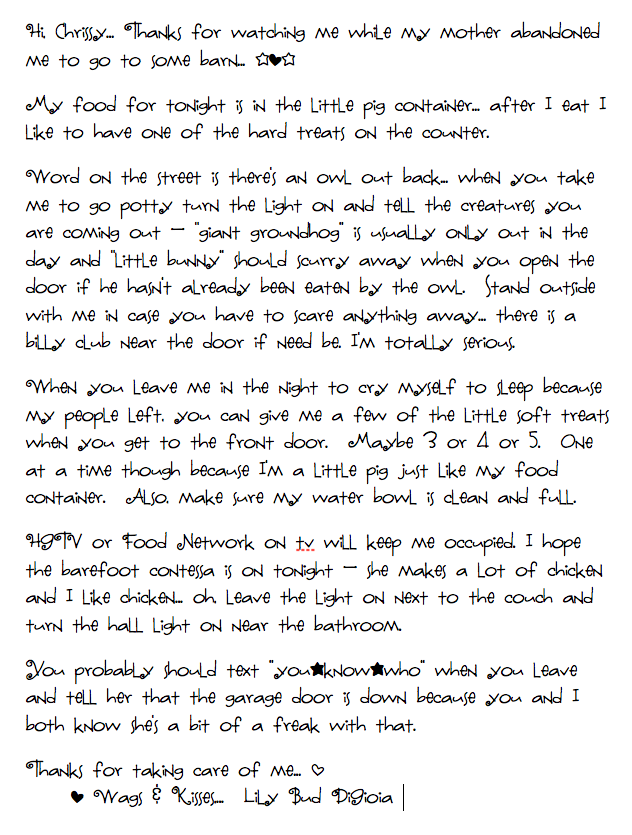 Hi, Chrissy... Thanks for watching me while my mother abandoned
me to go to some barn... ☆♥☆
My food for tonight is in the little pig container... after I eat I
like to have one of the hard treats on the counter.
Word on the street is there's an owl out back... when you take
me to go potty turn the light on and tell the creatures you
are coming out – "giant groundhog" is usually only out in the
day and "little bunny" should scurry away when you open the
door if he hasn't already been eaten by the owl. Stand outside
with me in case you have to scare anything away... there is a
billy club near the door if need be. I'm totally serious.
When you leave me in the night to cry myself to sleep because
my people left, you can give me a few of the little soft treats
when you get to the front door. Maybe 3 or 4 or 5. One
at a time though because I'm a little pig just like my food
container. Also, make sure my water bowl is clean and full.
HGTV or Food Network on tv will keep me occupied. I hope
the barefoot contessa is on tonight – she makes a lot of chicken
and I like chicken... oh, leave the light on next to the couch and
turn the hall light on near the bathroom.
You probably should text "you★know★who" when you leave
and tell her that the garage door is down because you and I
both know she's a bit of a freak with that.
Thanks for taking care of me... ♡
♥ Wags & Kisses... Lily Bud DiGioia